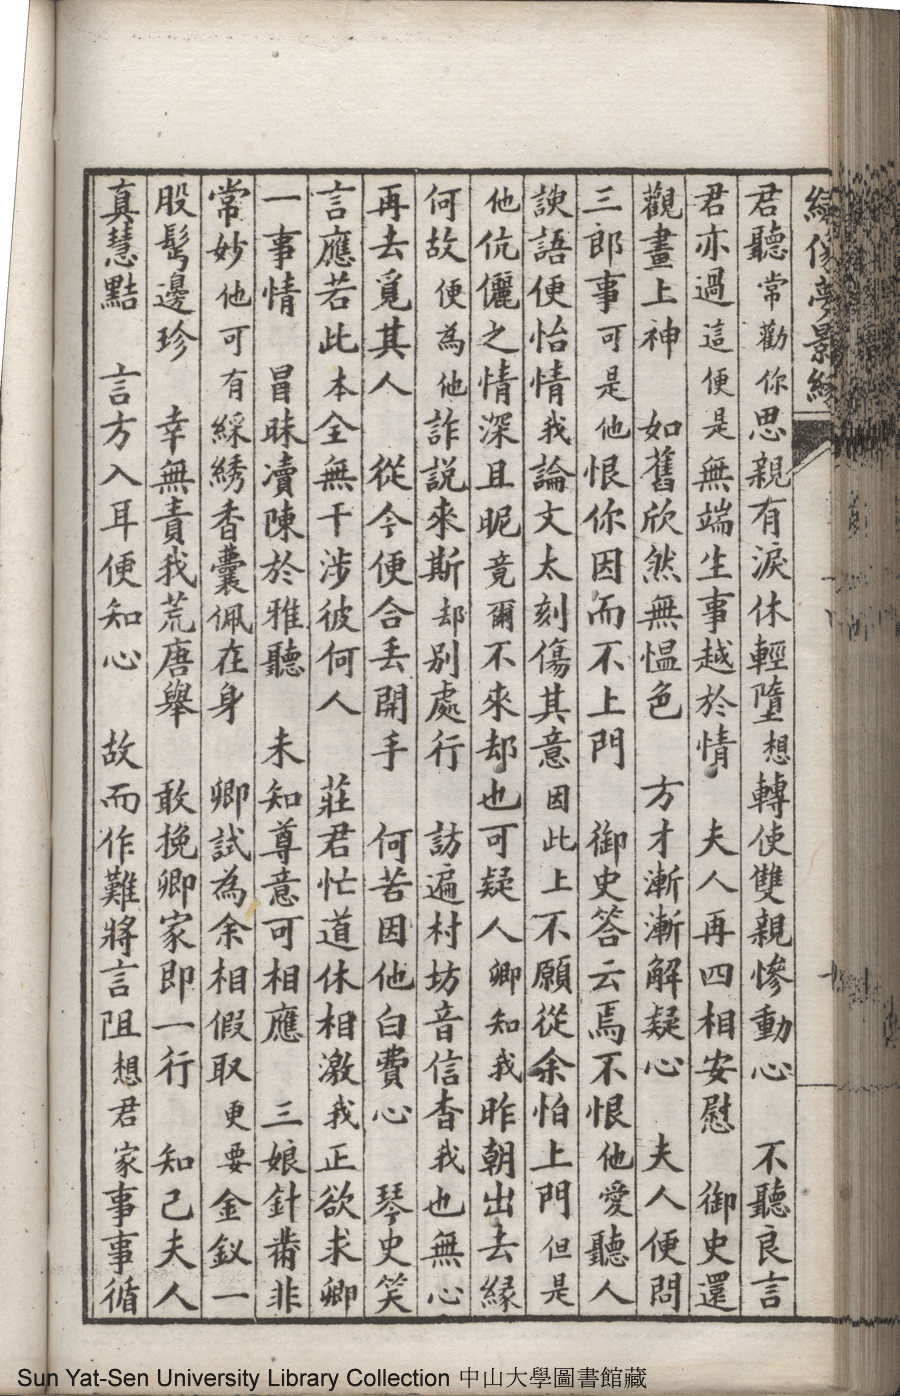 君聽常勸你思親有淚休輕墮想轉使雙親慘動心　不聽良言
君亦過這便是無端生事越於情　夫人再四相安慰　御史還
觀畫上神　如舊欣然無愠色　方才漸漸解疑心　夫人便問
三郎事可是他恨你因而不上門　御史答云焉不恨他愛聽人
諛語便怡情我論文太刻傷其意因此上不願從余怕上門但是
他伉儷之情深且昵竟爾不來却也可疑人卿知我昨朝出去緣
何故便為他詐説來斯却别處行　訪遍村坊音信杳我也無心
再去覓其人　從今便合丟開手　何苦因他白費心　琴史笑
言應若此本全無干涉彼何人　莊君忙道休相激我正欲求卿
一事情　冒昧瀆陳於雅聽　未知尊意可相應　三娘針黹非
常妙他可有綵綉香囊佩在身　卿試為余相假取更要金釵一
股髩邊珍　幸無責我荒唐舉　敢挽卿家即一行　知己夫人
真慧黠　言方入耳便知心　故而作難將言阻想君家事事循
Sun Yat-Sen University Library Collection 中山大學圖書館藏